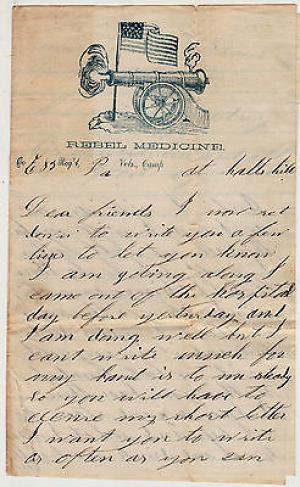 REBEL MEDICINE.
Co E 83 Reg't, Pa Vols., Camp at halls hill
Dear friends I now set
down to write you a few
lines to let you know
I am goting along I
came out of the hospital
day before yesterday and
I am doing well but I
cant write much for
my hand is to un steady
so you will have to
excuse my short letter
I want you to write
as often as you can